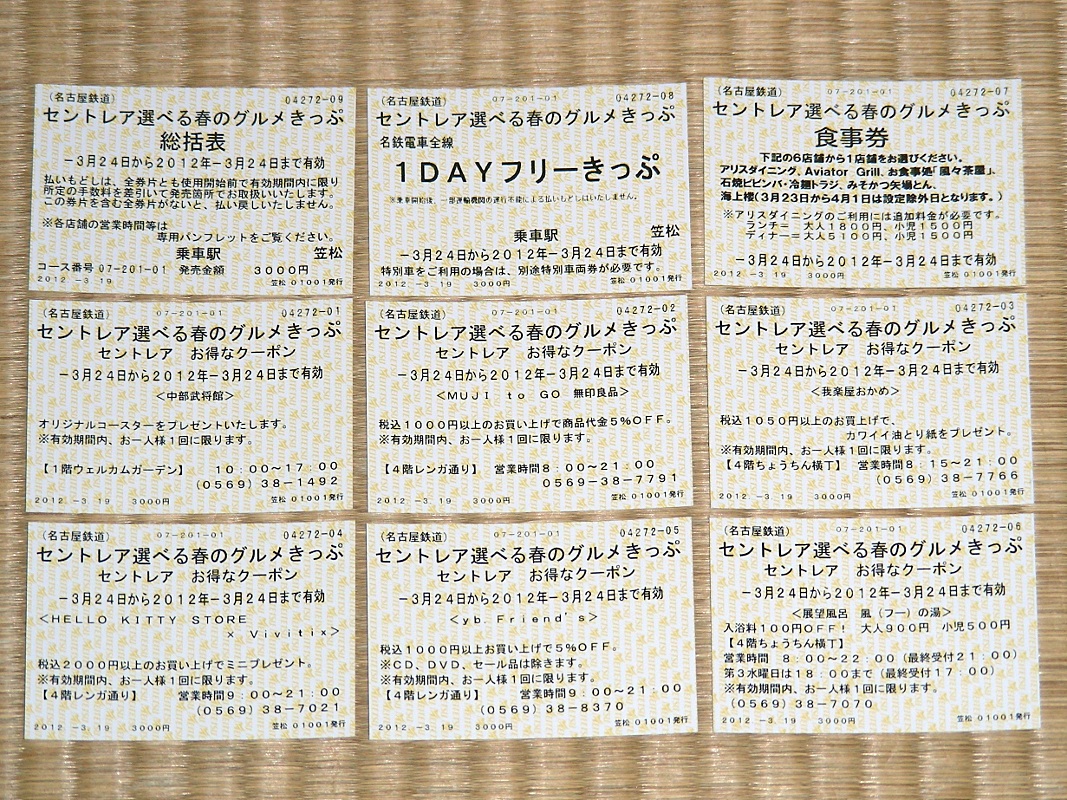 (名古屋鉄道) 04272-09
セントレア選べる春のグルメきっぷ
総括表
－3月24日から2012年－3月24日まで有効
払いもどしは、全券片とも使用開始前で有効期間内に限り
所定の手数料を差引いて発売箇所でお取扱いいたします。
この券片を含む全券片がないと、払い戻しいたしません。
※各店舗の営業時間等は
専用パンフレットをご覧ください。
乗車駅 笠松
コース番号 07-201-01 発売金額 3000円
2012.-3.19 笠松 01001発行
(名古屋鉄道) 07-201-01 04272-08
セントレア選べる春のグルメきっぷ
名鉄電車全線
1DAYフリーきっぷ
※乗車開始後、一部運輸機関の運行不能による払いもどしはいたしません。
乗車駅 笠松
－3月24日から2012年－3月24日まで有効
特別車をご利用の場合は、別途特別車両券が必要です。
2012.-3.19 3000円 笠松 01001発行
(名古屋鉄道) 07-201-01 04272-07
セントレア選べる春のグルメきっぷ
食事券
下記の6店舗から1店舗をお選びください。
アリスダイニング、Aviator Grill、お食事処「風々茶屋」、
石焼ビビンバ・冷麺トラジ、みそかつ矢場とん、
海上楼(3月23日から4月1日は設定除外日となります。)
※アリスダイニングのご利用には追加料金が必要です。
ランチ＝ 大人1800円、小児1500円
ディナー＝大人5100円、小児1500円
－3月24日から2012年－3月24日まで有効
2012.-3.19 3000円 笠松 01001発行
(名古屋鉄道) 07-201-01 04272-01
セントレア選べる春のグルメきっぷ
セントレア お得なクーポン
－3月24日から2012年－3月24日まで有効
＜中部武将館＞
オリジナルコースターをプレゼントいたします。
※有効期間内、お一人様1回に限ります。
【1階ウェルカムガーデン】 10:00～17:00
(0569)38-1492
2012.-3.19 3000円 笠松 01001発行
(名古屋鉄道) 07-201-01 04272-02
セントレア選べる春のグルメきっぷ
セントレア お得なクーポン
－3月24日から2012年－3月24日まで有効
＜MUJI to GO 無印良品＞
税込1000円以上のお買い上げで商品代金5%OFF。
※有効期間内、お一人様1回に限ります。
【4階レンガ通り】 営業時間8:00～21:00
0569-38-7791
2012.-3.19 3000円 笠松 01001発行
(名古屋鉄道) 07-201-01 04272-03
セントレア選べる春のグルメきっぷ
セントレア お得なクーポン
－3月24日から2012年－3月24日まで有効
＜我楽屋おかめ＞
税込1050円以上のお買上げで、
カワイイ油とり紙をプレゼント。
※有効期間内、お一人様1回に限ります。
【4階ちょうちん横丁】 営業時間8:15～21:00
(0569)38-7766
2012.-3.19 3000円 笠松 01001発行
(名古屋鉄道) 07-201-01 04272-04
セントレア選べる春のグルメきっぷ
セントレア お得なクーポン
－3月24日から2012年－3月24日まで有効
＜HELLO KITTY STORE
× Vivitix＞
税込2000円以上のお買い上げでミニプレゼント。
※有効期間内、お一人様1回に限ります。
【4階レンガ通り】 営業時間9:00～21:00
(0569)38-7021
2012.-3.19 3000円 笠松 01001発行
(名古屋鉄道) 07-201-01 04272-05
セントレア選べる春のグルメきっぷ
セントレア お得なクーポン
－3月24日から2012年－3月24日まで有効
＜yb.Friend's＞
税込1000円以上のお買上げで5%OFF。
※CD、DVD、セール品は除きます。
※有効期間内、お一人様1回に限ります。
【4階レンガ通り】 営業時間9:00～21:00
(0569)38-8370
2012.-3.19 3000円 笠松 01001発行
(名古屋鉄道) 07-201-01 04272-06
セントレア選べる春のグルメきっぷ
セントレア お得なクーポン
－3月24日から2012年－3月24日まで有効
＜展望風呂 風(フー)の湯＞
入浴料100円OFF! 大人900円 小児500円
【4階ちょうちん横丁】
営業時間 8:00～22:00(最終受付21:00)
第3水曜日は18:00まで(最終受付17:00)
※有効期間内、お一人様1回に限ります。
(0569)38-7070
2012.-3.19 3000円 笠松 01001発行